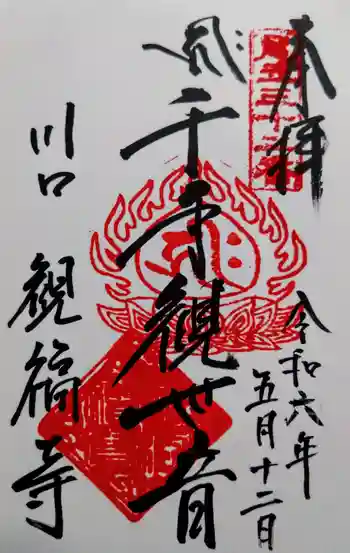 奉拝
令和六年
五月十二日
千手観世音
川口
観福寺